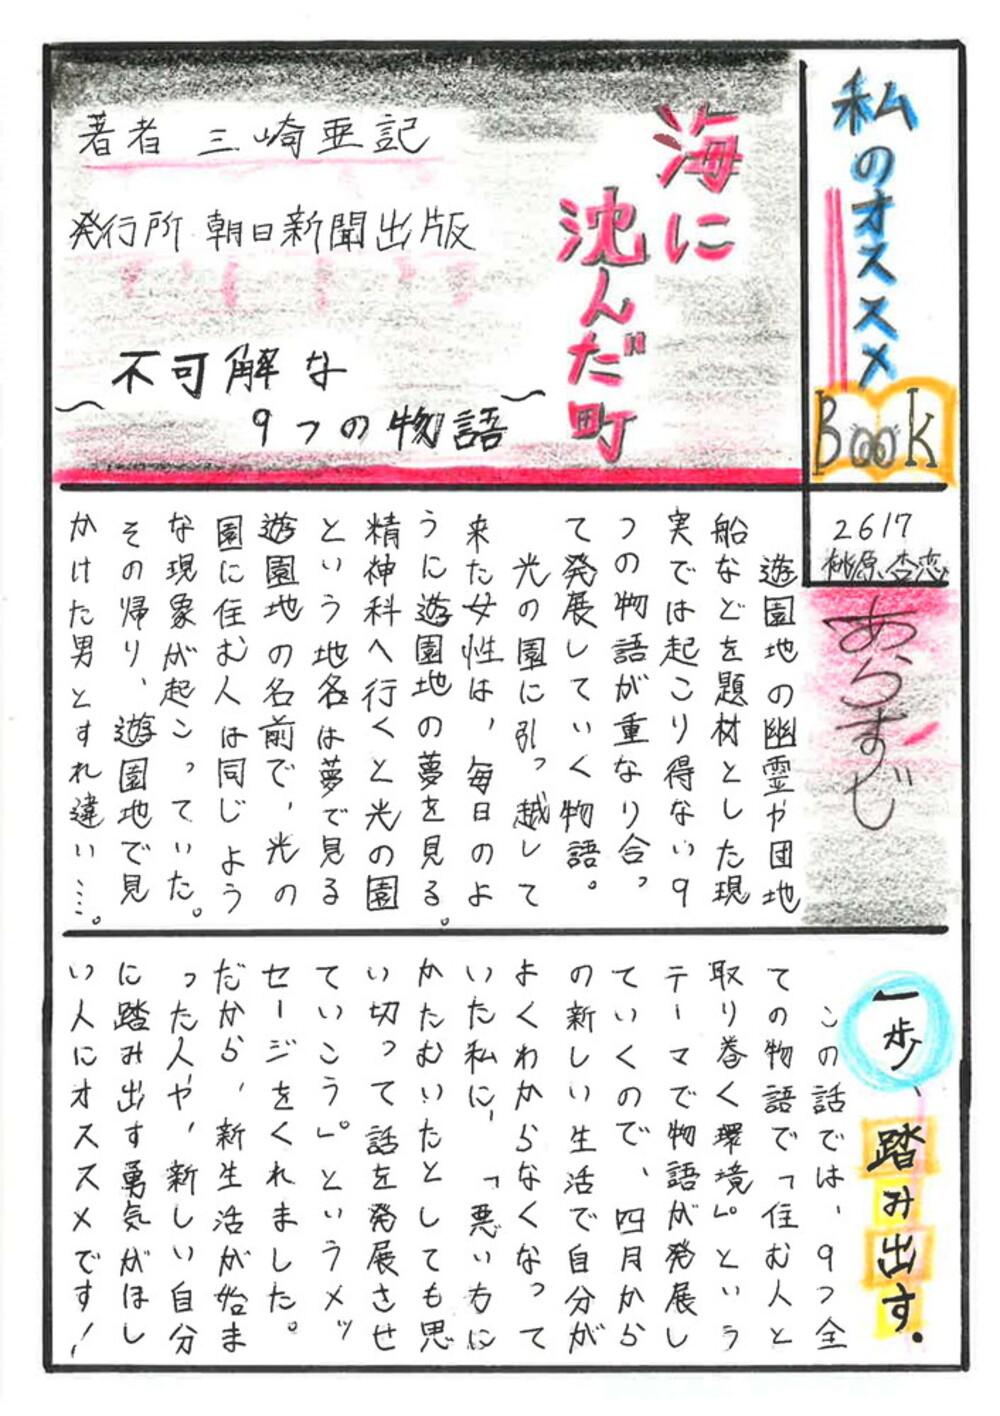 私のオススメ
Book
2617
桃原杏恋
海に
沈んだ町
著者 三崎亜記
発行所 朝日新聞出版
〜不可解な
9つの物語〜
あらすじ
遊園地の幽霊や団地
船などを題材とした現
実では起こり得ない9
つの物語が重なり合っ
て発展していく物語。
光の園に引っ越して
来た女性は、毎日のよ
うに遊園地の夢を見る。
精神科へ行くと光の園
という地名は夢で見る
遊園地の名前で、光の
園に住む人は同じよう
な現象が起こっていた。
その帰り、遊園地で見
かけた男とすれ違い…。
一歩、踏み出す.
この話では、9つ全
ての物語で「住む人と
取り巻く環境」という
テーマで物語が発展し
ていくので、四月から
の新しい生活で自分が
よくわからなくなって
いた私に、「悪い方に
かたむいたとしても思
い切って話を発展させ
ていこう。」というメッ
セージをくれました。
だから、新生活が始ま
った人や、新しい自分
に踏み出す勇気がほし
い人にオススメです!